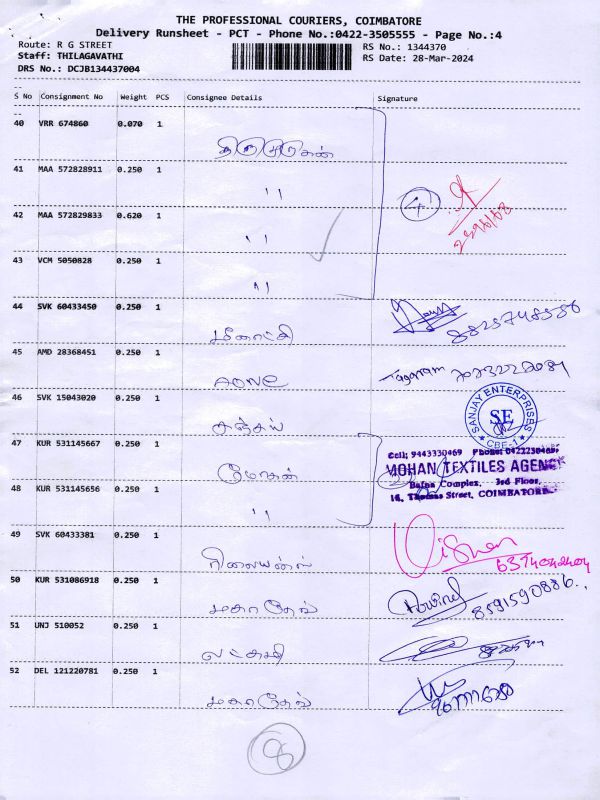 THE PROFESSIONAL COURIERS, COIMBATORE
Delivery Runsheet - PCT - Phone No.:0422-3505555 - Page No.:4
Route: R G STREET
RS No.: 1344370
Staff: THILAGAVATHI
RS Date: 28-Mar-2024
DRS No.: DCJB134437004
S No Consignment No Weight PCS Consignee Details Signature
40 VRR 674860 0.070 1
41 MAA 572828911 0.250 1 "
4
42 MAA 572829833 0.620 1 "
43 VCM 5050828 0.250 1 "
44 SVK 60433450 0.250 1 மீனாட்சி
45 AMD 28368451 0.250 1 AONE
46 SVK 15043020 0.250 1 சஞ்சய்
SANJAY ENTERPRISES
SE
CBE-1
47 KUR 531145667 0.250 1 மோகன்
Cell: 9443330469 Phone: 0422230469
MOHAN TEXTILES AGENCY
Bafna Complex, 3rd Floor,
16, Thomas Street, COIMBATORE
48 KUR 531145656 0.250 1 "
49 SVK 60433381 0.250 1 ரிலையன்ஸ்
50 KUR 531086918 0.250 1 மகாதேவ் 8591590886
51 UNJ 510052 0.250 1 லட்சுமி
52 DEL 121220781 0.250 1 மகாதேவ்